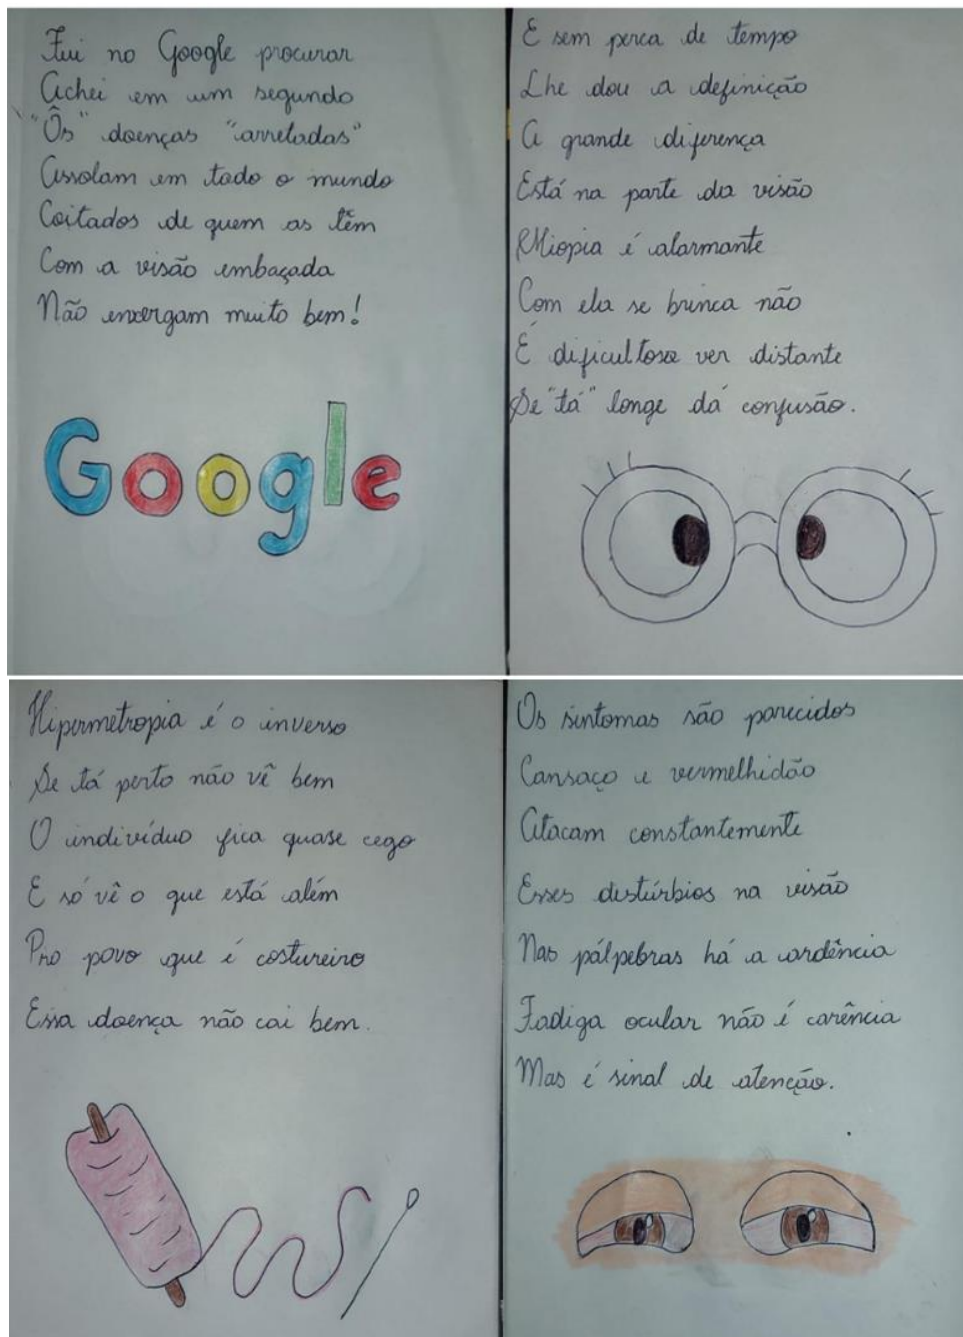 Fui no Google procurar
Achei em um segundo
"Ôs" doenças "arretadas"
Assolam em todo o mundo
Coitados de quem as têm
Com a visão embaçada
Não enxergam muito bem!
Google
E sem perca de tempo
Lhe dou a definição
A grande diferença
Está na parte da visão
Miopia é alarmante
Com ela se brinca não
É dificultoso ver distante
Se "tá" longe dá confusão.
Hipermetropia é o inverso
Se tá perto não vê bem
O indivíduo fica quase cego
E só vê o que está além
Pro povo que é costureiro
Essa doença não cai bem.
Os sintomas são parecidos
Cansaço e vermelhidão
Atacam constantemente
Esses distúrbios na visão
Nas pálpebras há a ardência
Fadiga ocular não é carência
Mas é sinal de atenção.